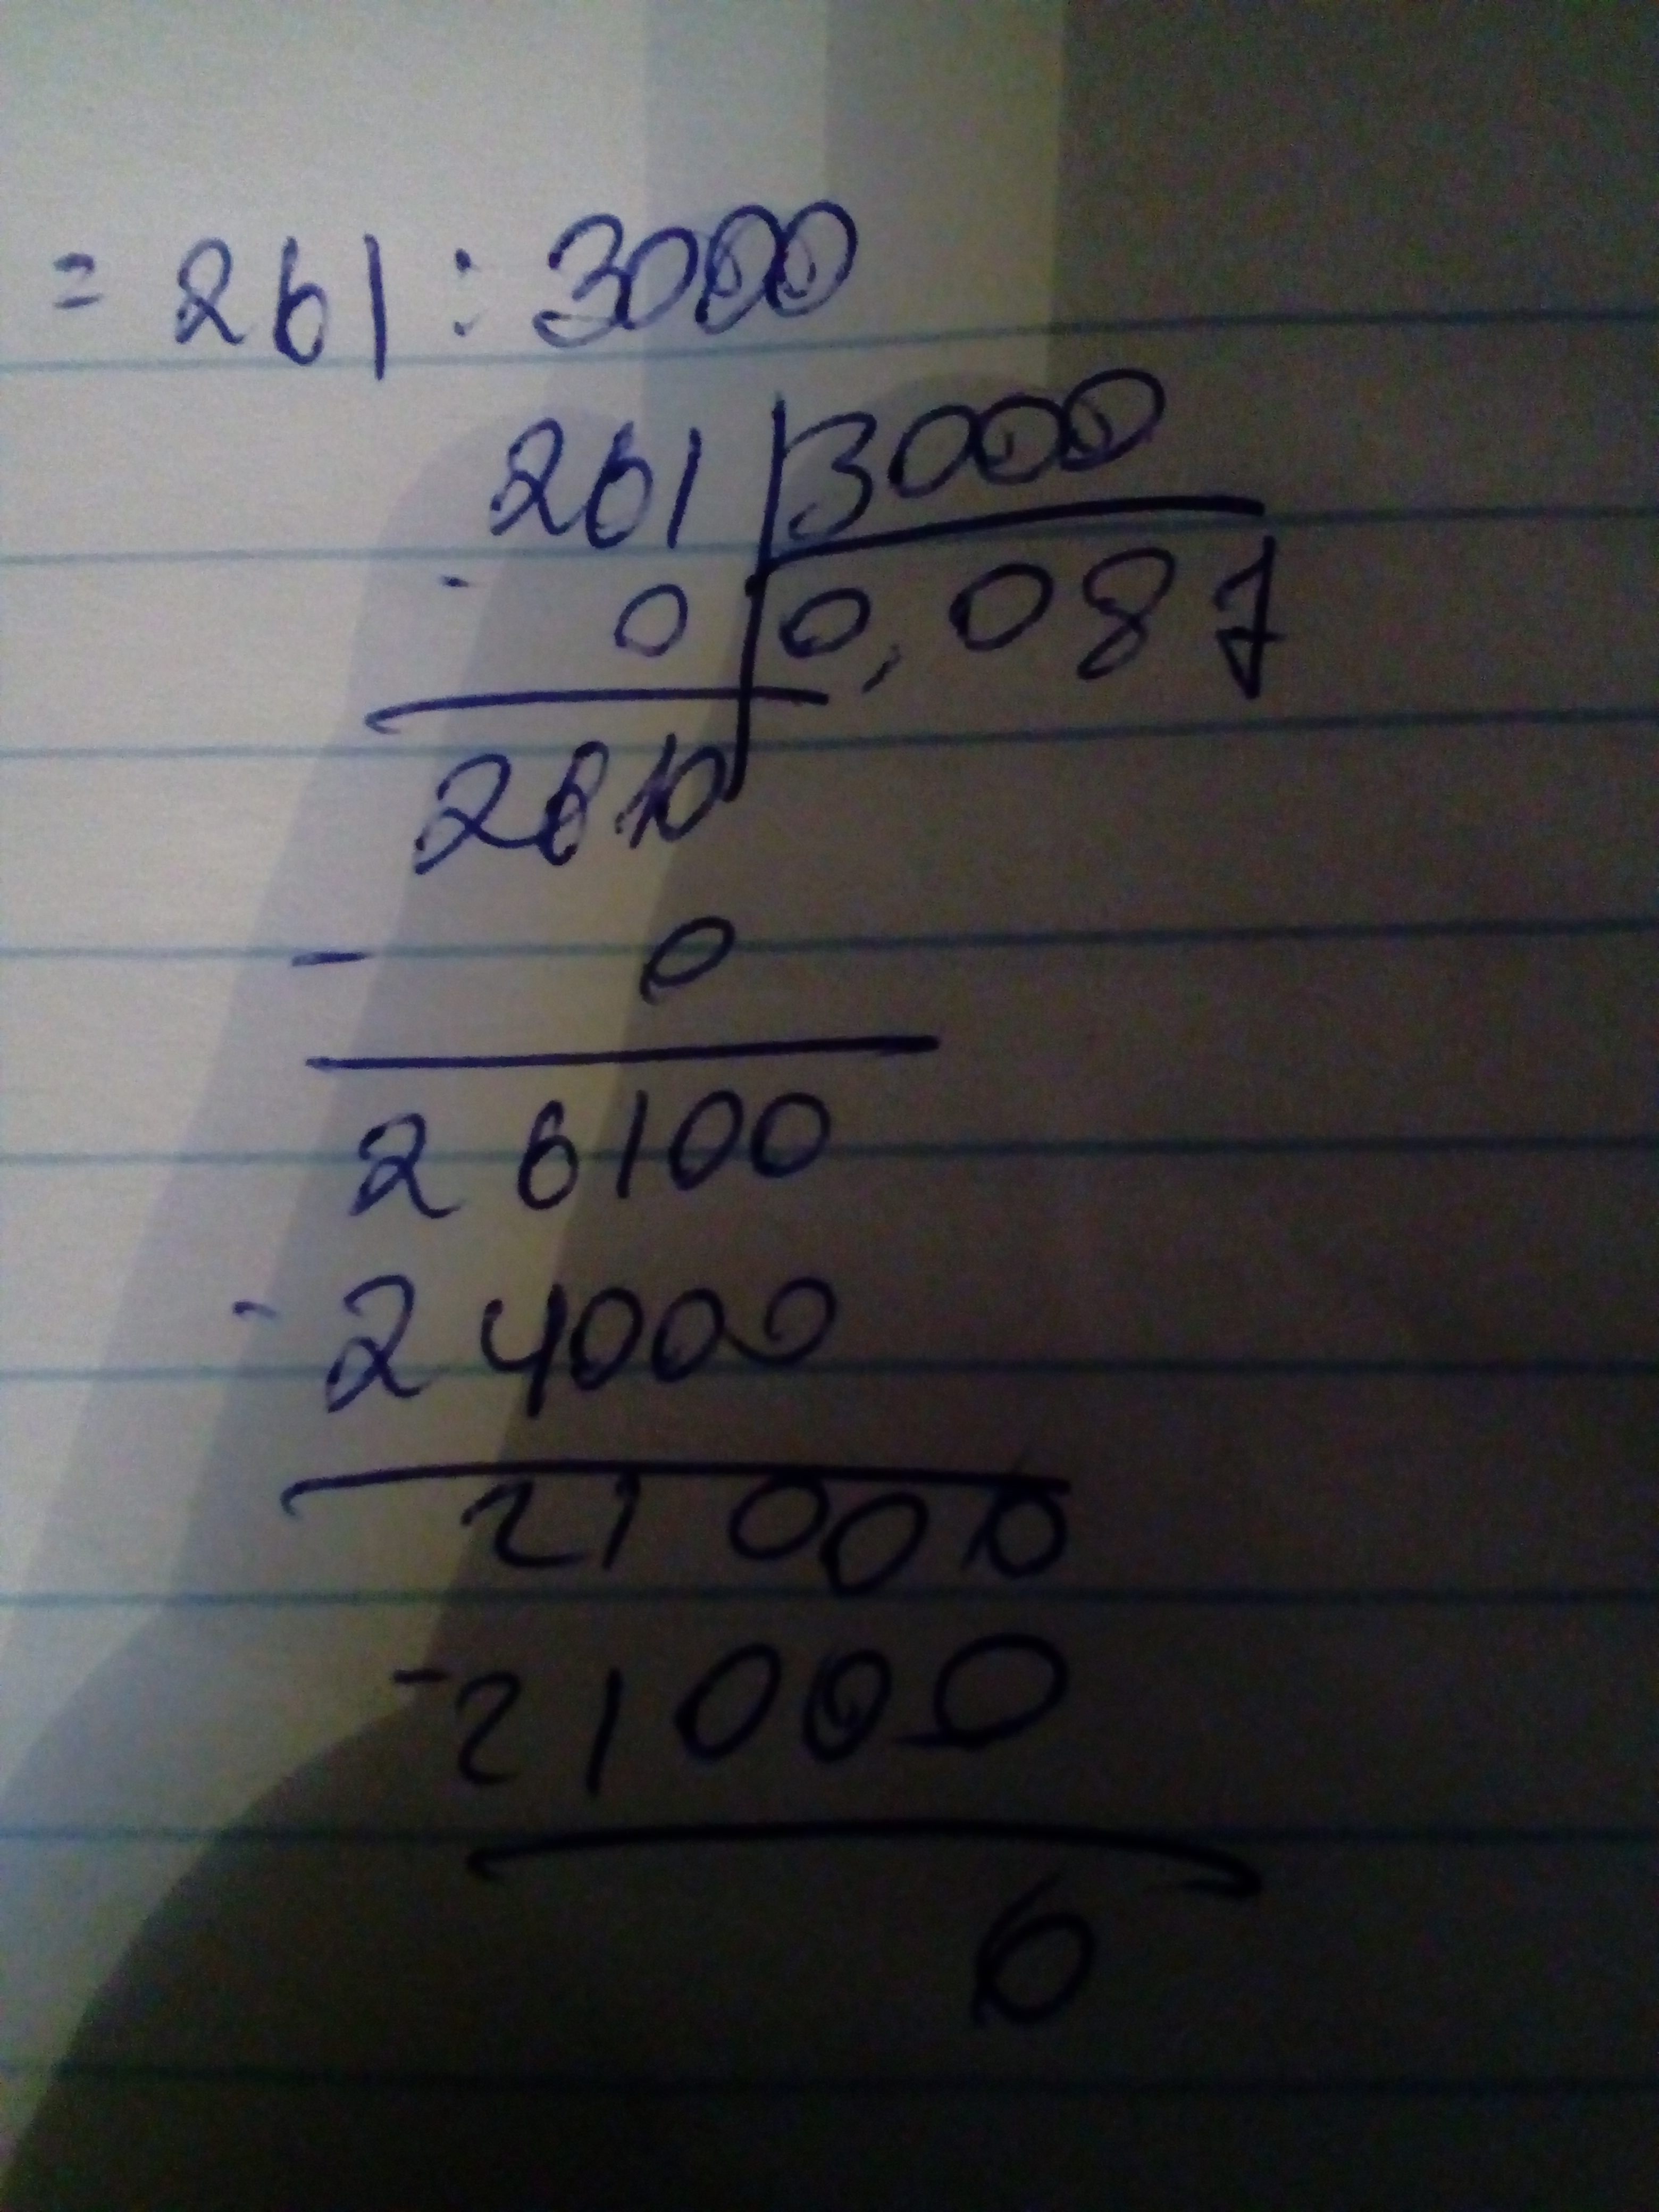 = 261 : 3000
261 | 3000
- 0 | 0,087
2610
- 0
26100
- 24000
21000
- 21000
0